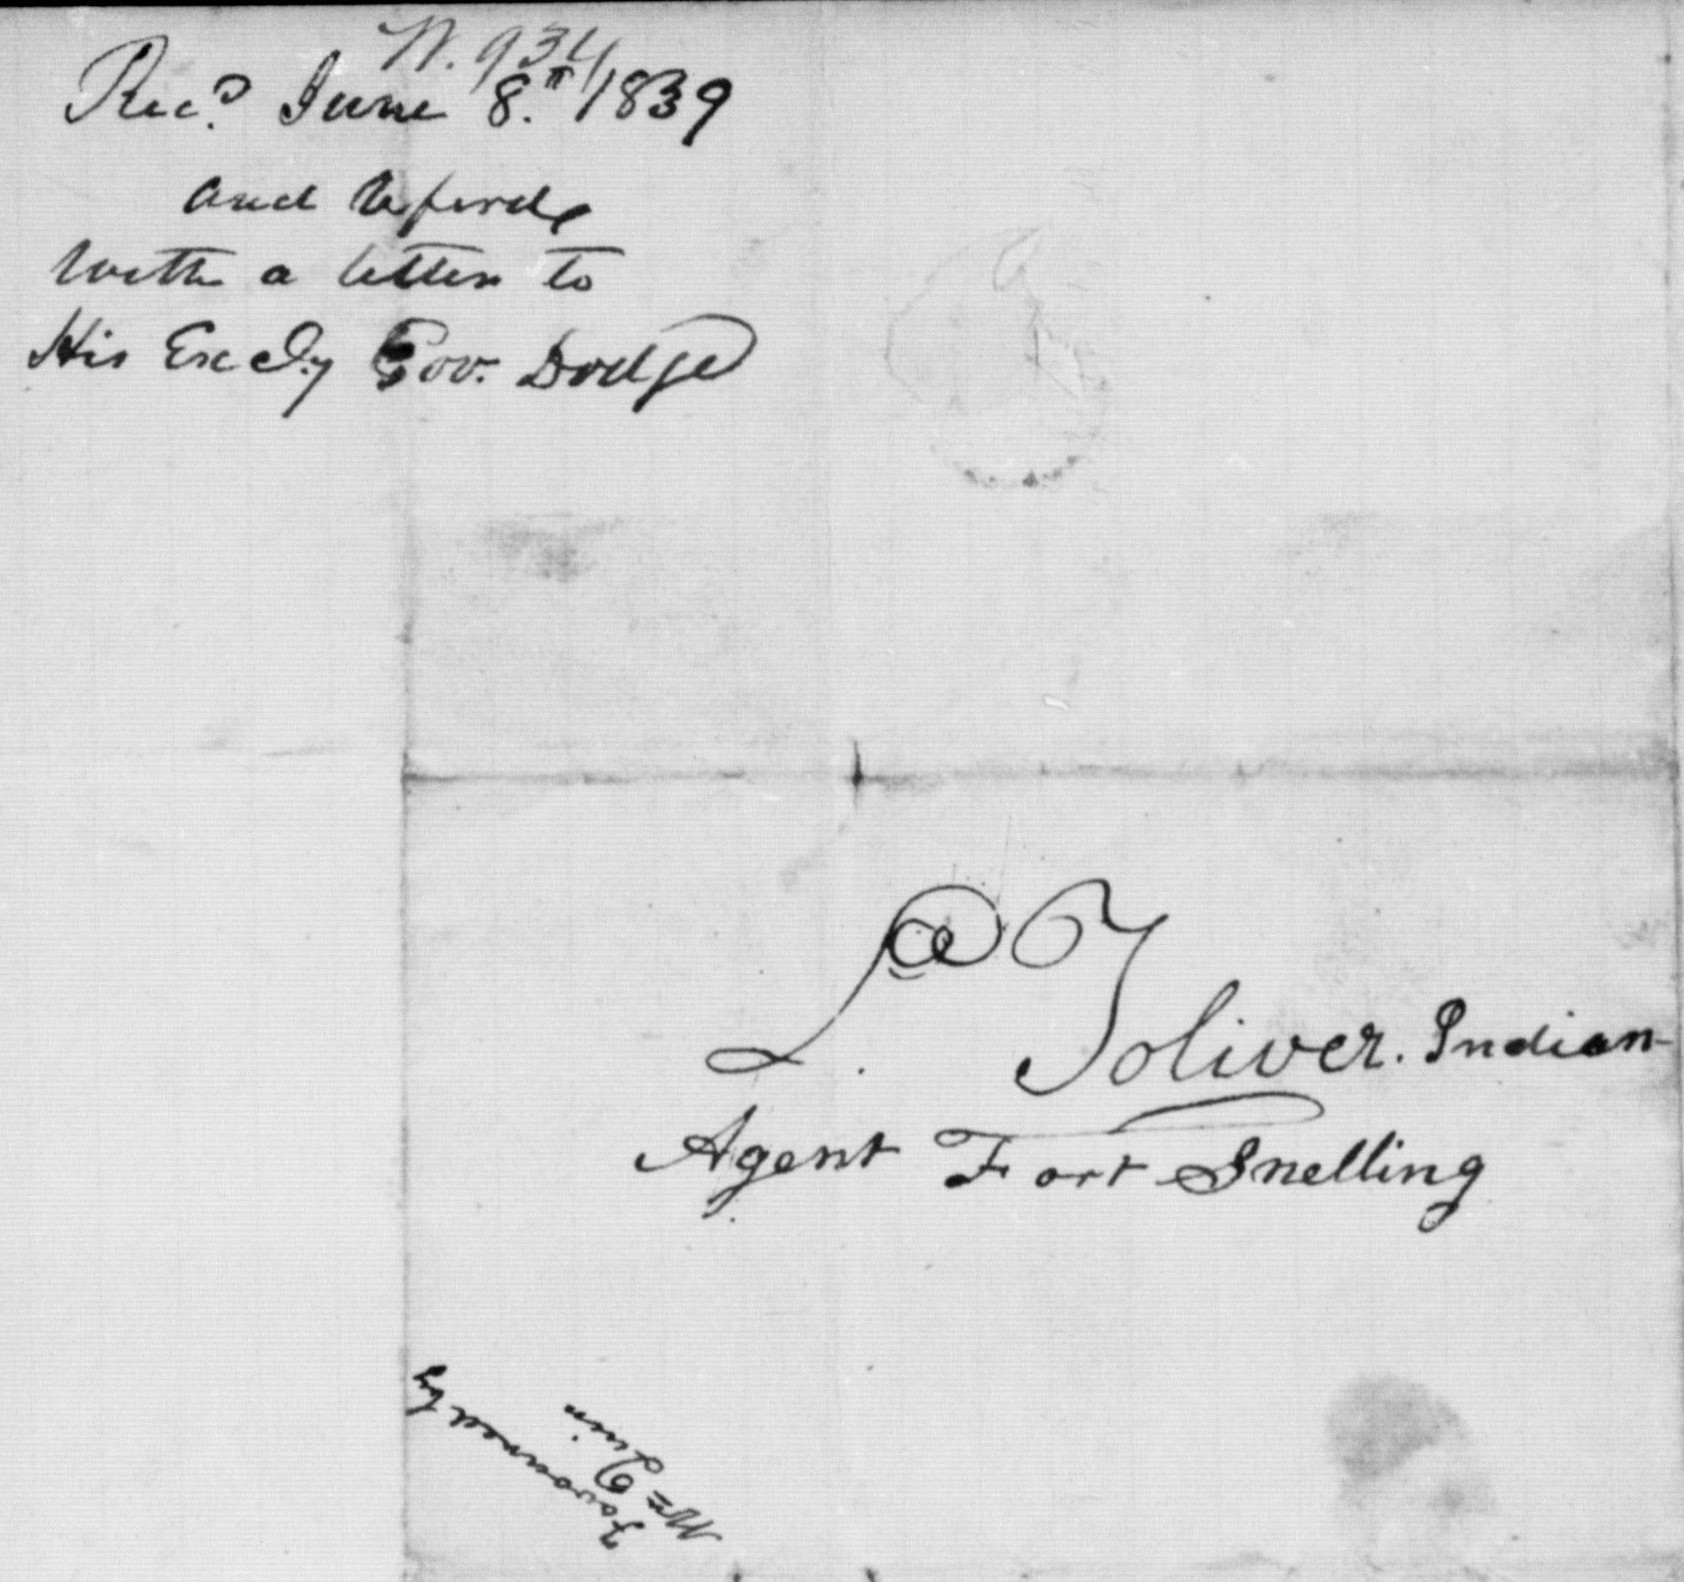 N. 934
Recd June 8th 1839
and referd
with a letter to
His Excely Gov. Dodge
La Toliver. Indian
Agent Fort Snelling
Favoured by
Mr Quin